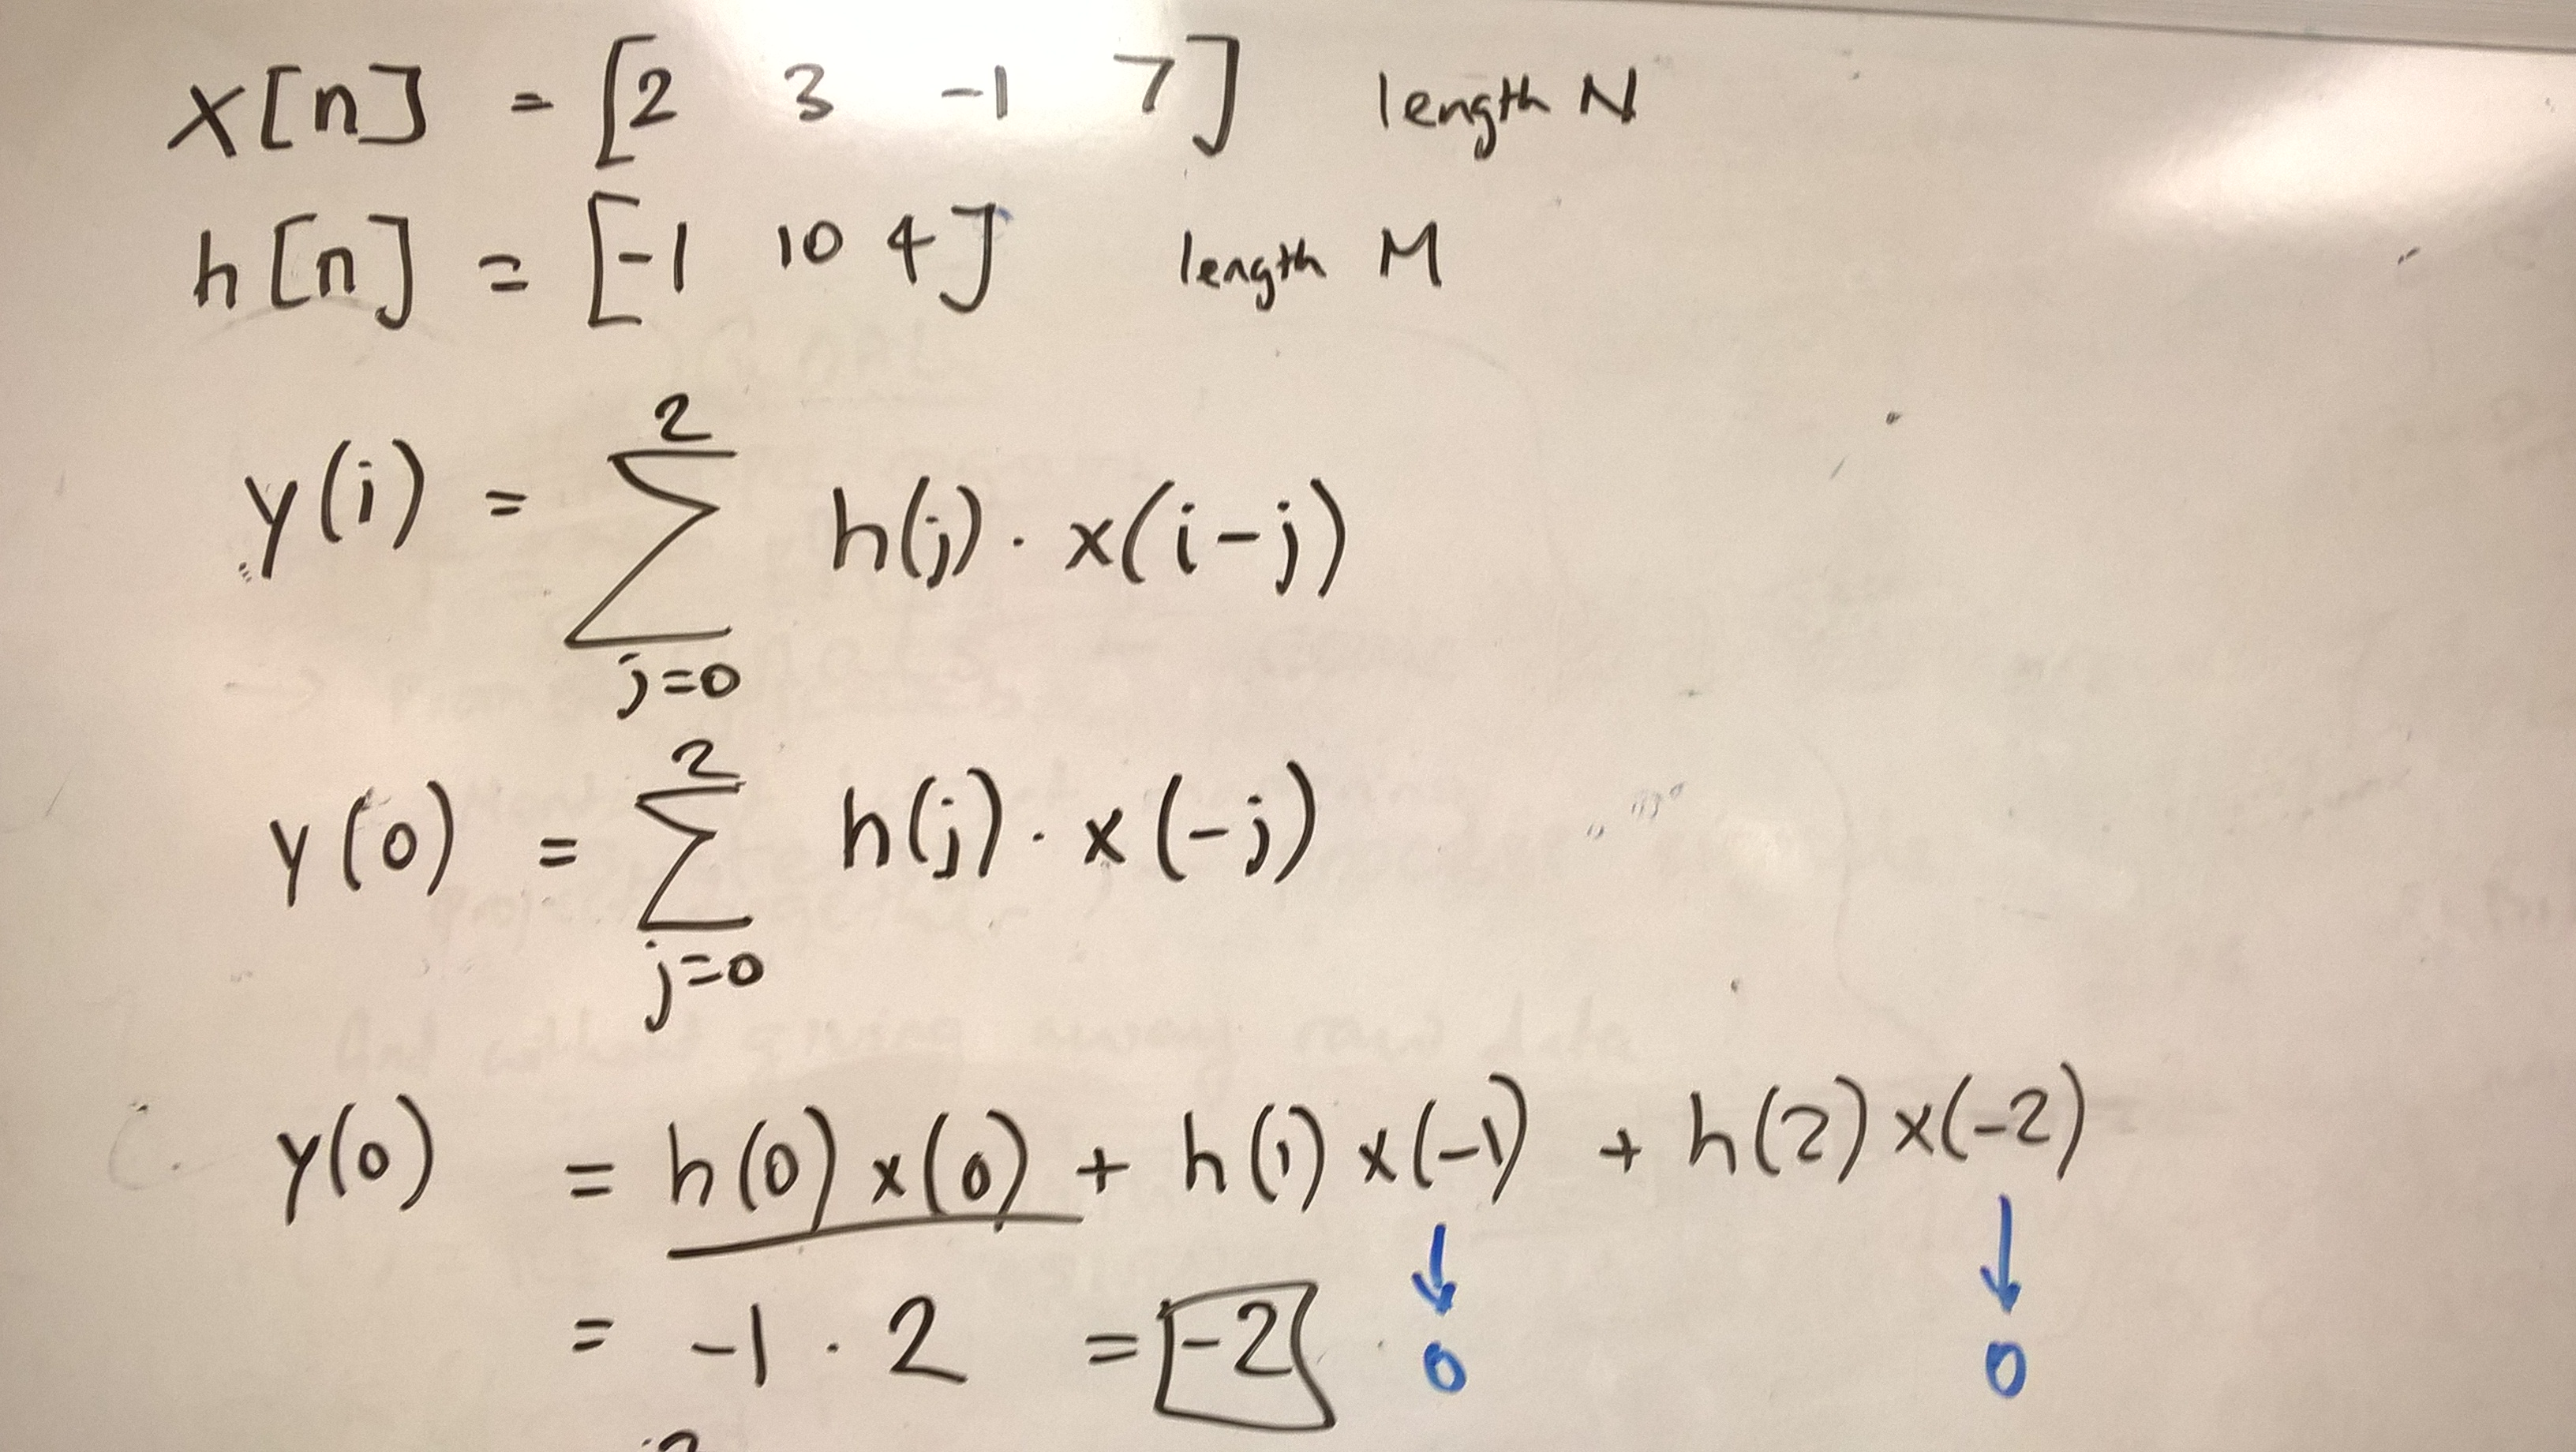 x[n] = [2 3 -1 7] length N
h[n] = [-1 10 4] length M
2
y(i) = ∑ h(j) · x(i-j)
j=0
2
y(0) = ∑ h(j) · x(-j)
j=0
y(0) = h(0) x(0) + h(1) x(-1) + h(2) x(-2)
↓ ↓
= -1 · 2 = -2 0 0